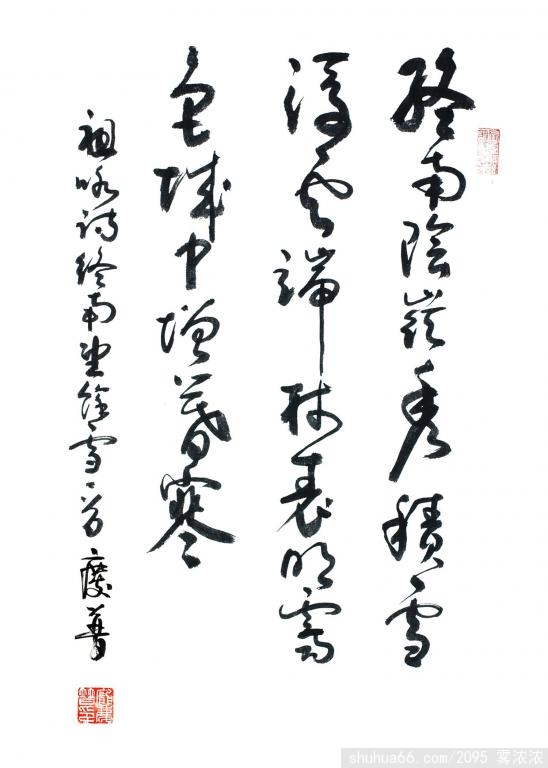 終南陰嶺秀積雪
浮云端林表明霽
色城中增暮寒
祖咏詩終南望餘雪一首
shuhua66.com/2095 雾浓浓